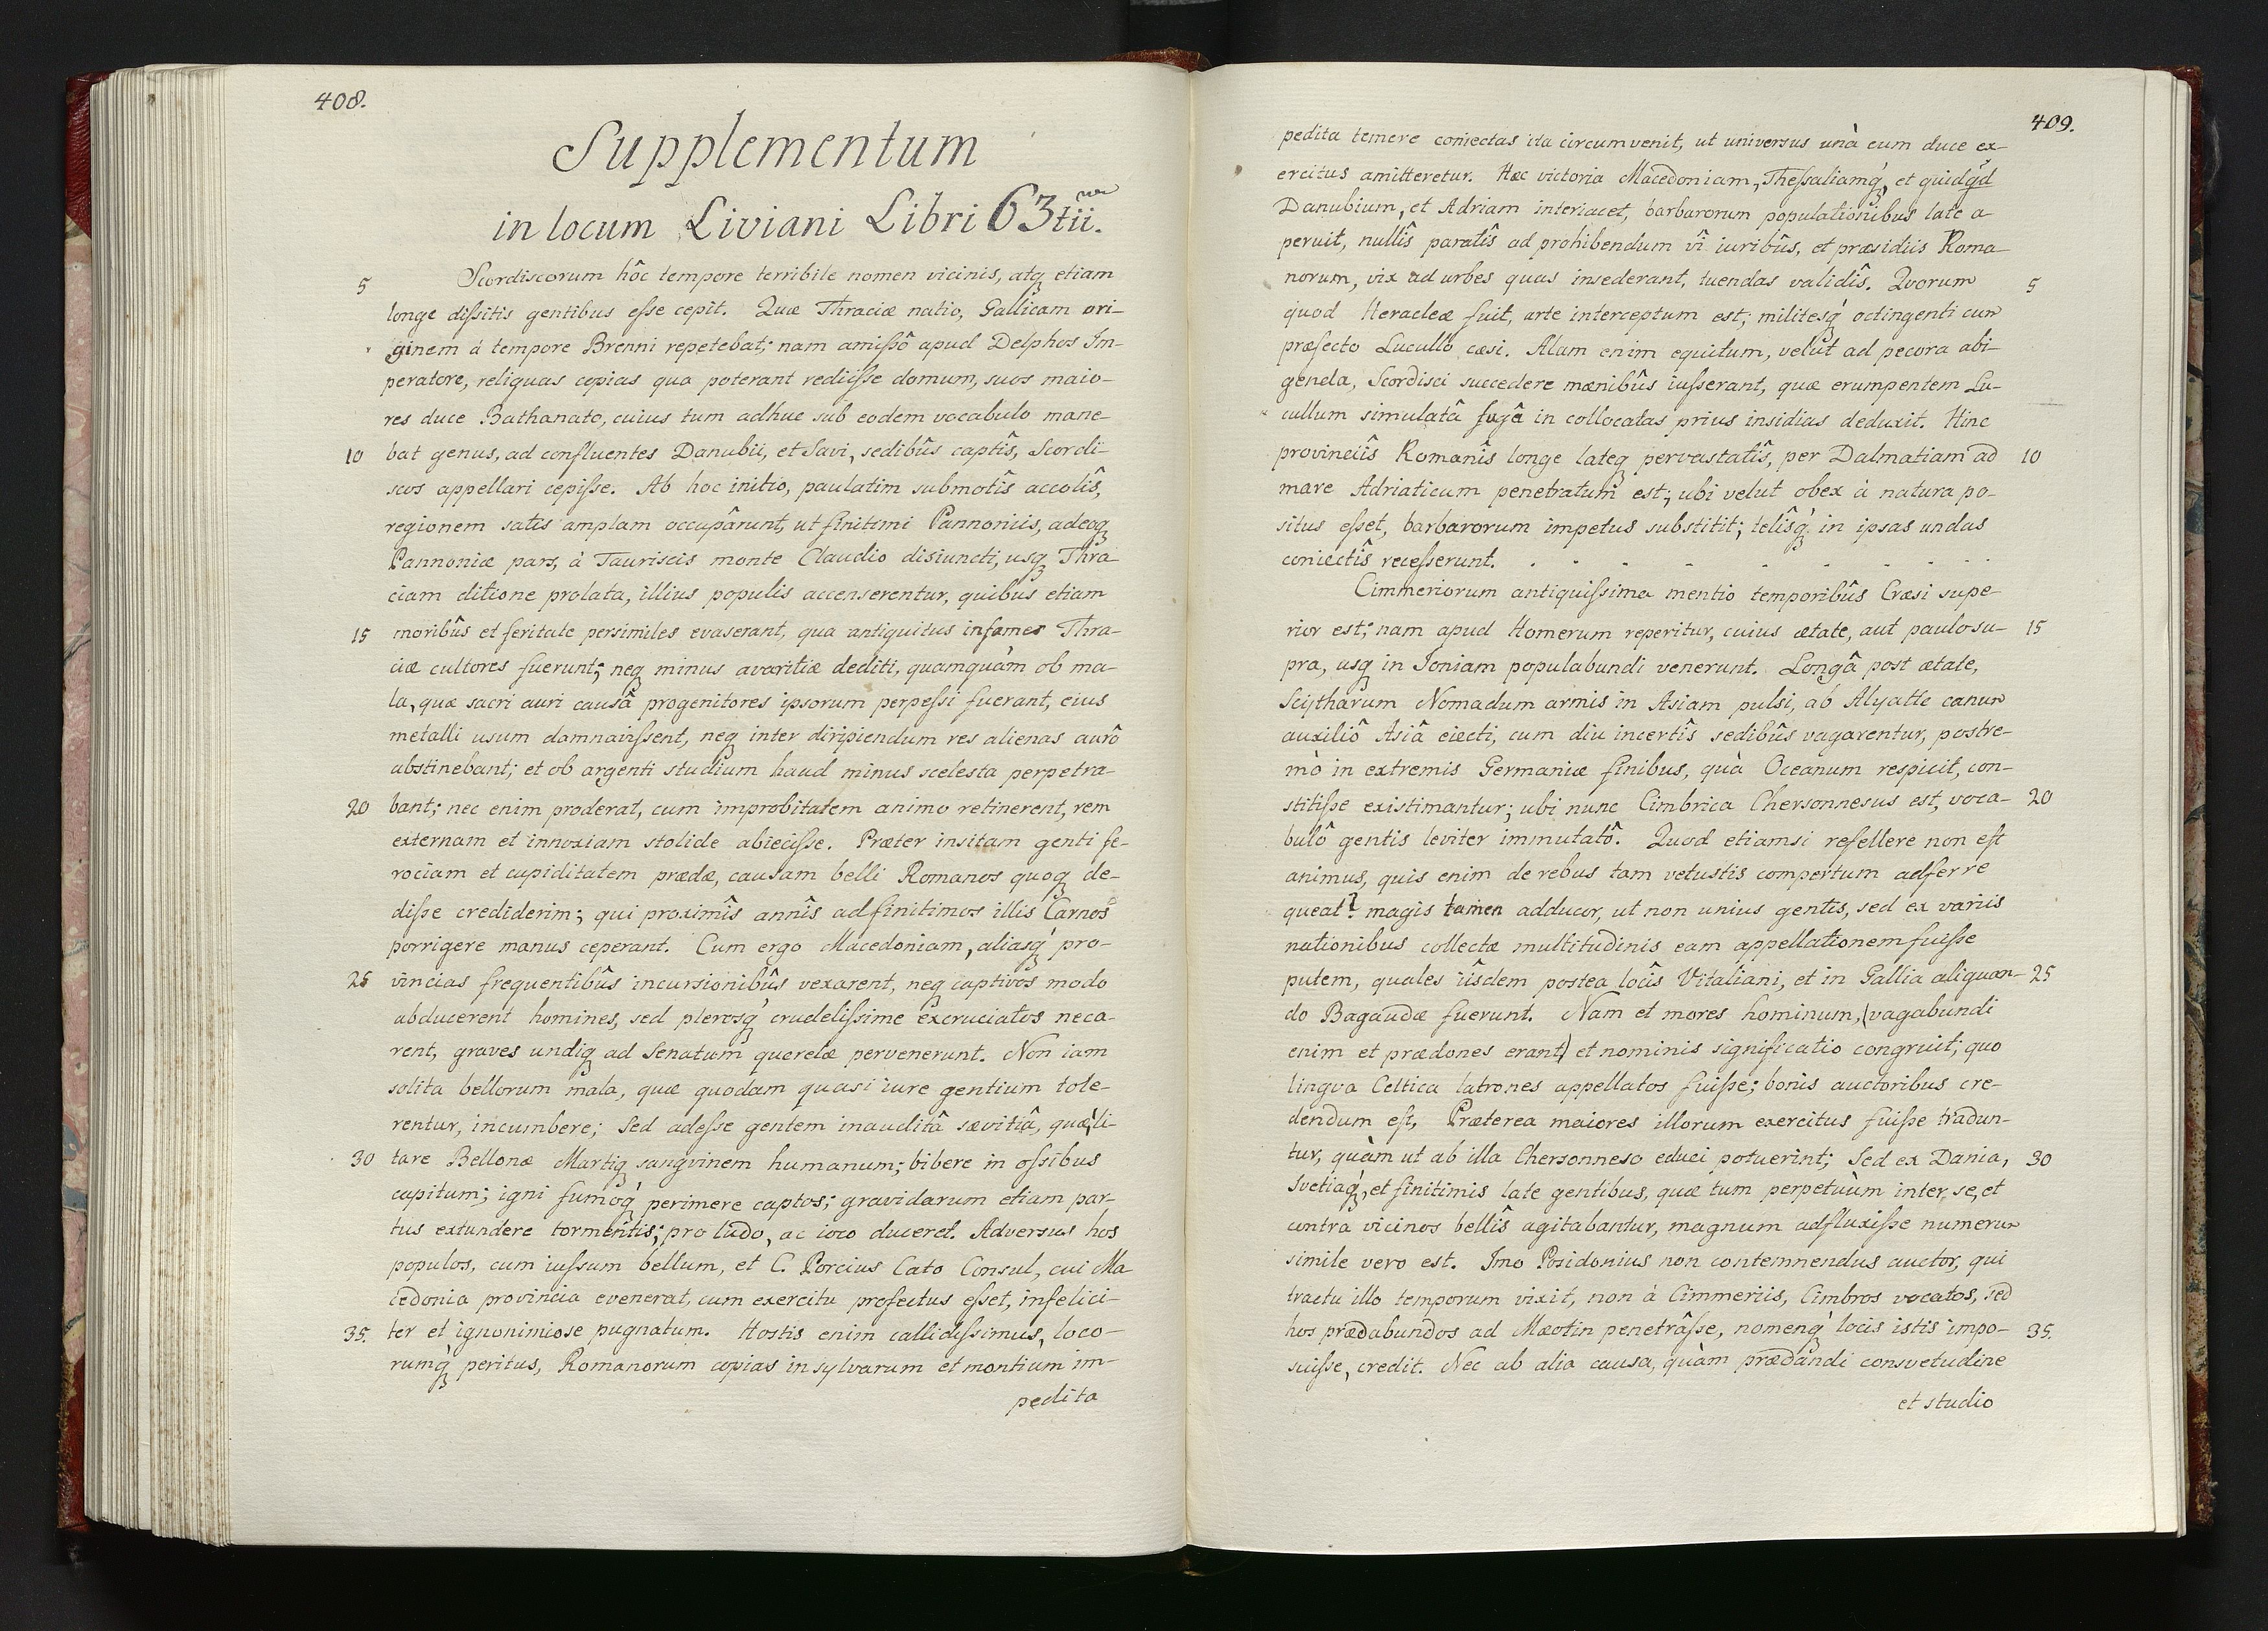 408.
Supplementum
in locum Liviani Libri 63tii.
5 Scordiscorum hôc tempore terribile nomen vicinis, atq etiam
longe dissitis gentibus esse cepit. Quæ Thraciæ natio, Gallicam ori-
ginem à tempore Brenni repetebat; nam amissô apud Delphos Im-
peratore, reliquas copias qua poterant rediisse domum, suos maio-
res duce Bathanato, cuius tum adhuc sub eodem vocabulo mane-
10 bat genus, ad confluentes Danubii, et Savi, sedibûs captîs, Scordi-
scos appellari cepisse. Ab hoc initio, paulatim submotîs accolîs,
regionem satis amplam occupârunt, ut finitimi Pannoniis, adeoq
Pannoniæ pars, à Tauriscis monte Claudio disiuncti, usq Thra
ciam ditione prolata, illius populis accenserentur, quibus etiam
15 moribûs et feritate persimiles evaserant, qua antiquitus infames Thra-
ciæ cultores fuerunt; neq minus avaritiæ dediti, quamquàm ob ma-
la, quæ sacri auri causâ progenitores ipsorum perpessi fuerant, eius
metalli usum damnavissent, neq inter diripiendum res alienas aurô
abstinebant; et ob argenti studium haud minus scelesta perpetra-
20 bant; nec enim proderat, cum improbitatem animo retinerent, rem
externam et innoxiam stolide abiecisse. Præter insitam genti fe-
rociam et cupiditatem prædæ, causam belli Romanos quoq de-
disse crediderim; qui proximîs annîs ad finitimos illis Carnos
porrigere manus ceperant. Cum ergo Macedoniam, aliasq́ pro-
25 vincias frequentibûs incursionibûs vexarent, neq captivos modo
abducerent homines, sed plerosq́ crudelissime excruciatos neca-
rent, graves undiq ad Senatum querelæ pervenerunt. Non iam
solita bellorum mala, quæ quodam quasi iure gentium tole-
rentur, incumbere; Sed adesse gentem inauditâ sævitiâ, quæ li-
30 tare Bellonæ Martiq sangvinem humanum; bibere in ossibus
capitum; igni fumoq́ perimere captos; gravidarum etiam par-
tus extundere tormentis; pro ludo, ac ioco duceret. Adversus hos
populos, cum iussum bellum, et C. Porcius Cato Consul, cui Ma
cedonia provincia evenerat, cum exercitu profectus esset, infelici-
35. ter et ignonimiose pugnatum. Hostis enim callidissimus, loco-
rumq́ peritus, Romanorum copias in sylvarum et montium im-
pedita
409.
pedita temere coniectas ita circumvenit, ut universus unà cum duce ex-
ercitus amitteretur. Hæc victoria Macedoniam, Thessaliamq́, et quidqd
Danubium, et Adriam interiacet, barbarorum populationibus late a
peruit, nullîs paratîs ad prohibendum vî iuribûs, et præsidiis Roma
norum, vix ad urbes quas insederant, tuendas validîs. Qvorum 5
quod Heracleæ fuit, arte interceptum est; militesq́ octingenti cum
præfecto Lucullô cæsi. Alam enim equitum, velut ad pecora abi-
genda, Scordisci succedere mænibûs iusserant, quæ erumpentem Lu-
cullum simulatâ fugâ in collocatas prius insidias deduxit. Hinc
provinciîs Romanîs longe lateq pervastatîs, per Dalmatiam ad 10
mare Adriaticum penetratum est; ubi velut obex à natura po-
situs esset, barbarorum impetus substitit; telîsq́ in ipsas undas
coniectîs recesserunt. . . . . . . . . . .
Cimmeriorum antiquissima mentio temporibûs Cræsi supe-
rior est; nam apud Homerum reperitur, cuius ætate, aut paulo su- 15
pra, usq in Ioniam populabundi venerunt. Longâ post ætate,
Scytharum Nomadum armis in Asiam pulsi, ab Alyatte canum
auxiliô Asiâ eiecti, cum diu incertîs sedibûs vagarentur, postre-
mò in extremis Germaniæ finibus, quà Oceanum respicit, con-
stitisse existimantur; ubi nunc Cimbrica Chersonnesus est, voca- 20
bulô gentis leviter immutatô. Quod etiamsi refellere non est
animus, quis enim de rebus tam vetustis compertum adferre
queat? magis tamen adducor, ut non unius gentis, sed ex variis
nationibus collectæ multitudinis eam appellationem fuisse
putem, quales iîsdem postea locîs Vitaliani, et in Gallia aliquan- 25
do Bagaudæ fuerunt. Nam et mores hominum, (vagabundi
enim et prædones erant) et nominis significatio congruit; quo
lingva Celtica latrones appellatos fuisse; bonis auctoribus cre-
dendum est, Præterea maiores illorum exercitus fuisse tradun-
tur, quàm ut ab illa Chersonneso educi potuerint; Sed ex Dania, 30
Svetiaq́, et finitimis late gentibus, quæ tum perpetuùm inter se, et
contra vicinos bellîs agitabantur, magnum adfluxisse numerum
simile vero est. Imo Posidonius non contemnendus auctor, qui
tractu illo temporum vixit, non à Cimmeriis, Cimbros vocatos, sed
hos prædabundos ad Mæotin penetrâsse, nomenq́ locis istis impo- 35.
suisse, credit. Nec ab alia causa, quàm prædandi consvetudine
et studio